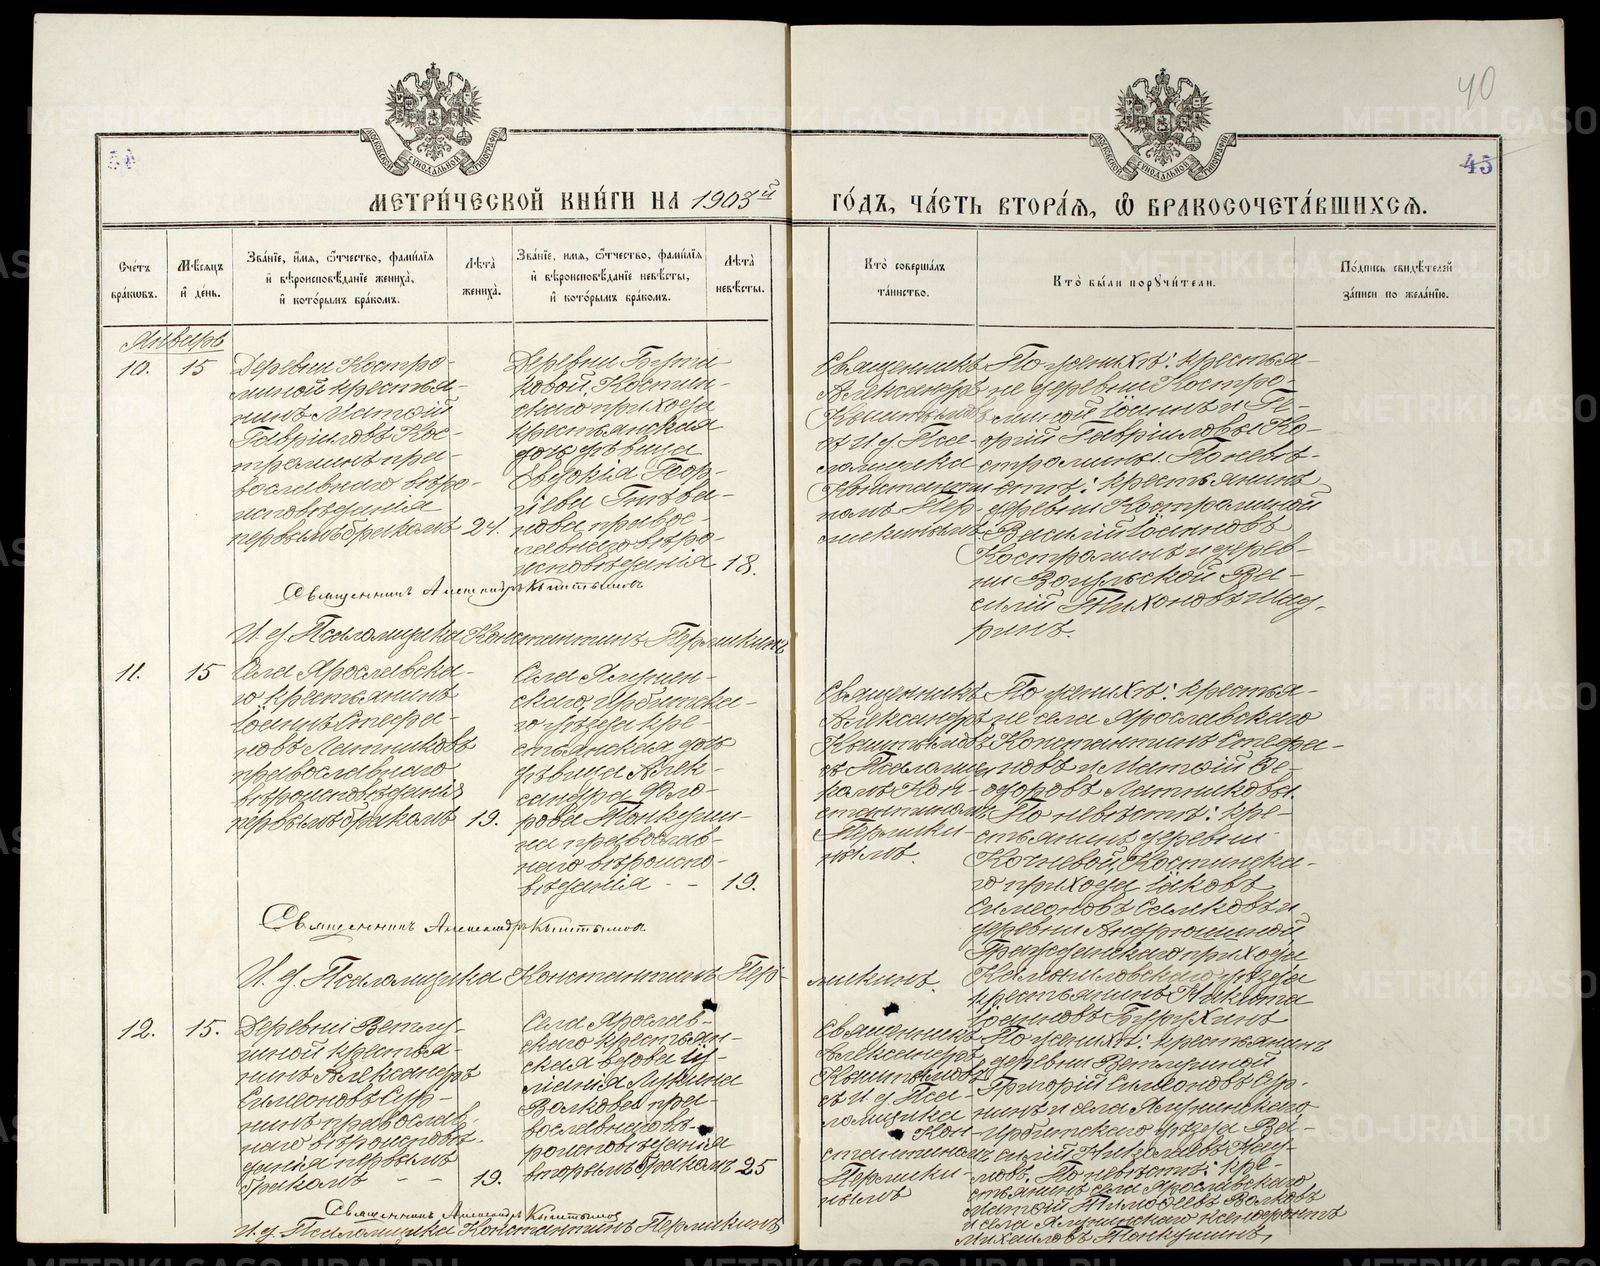 40
45
МЕТРИ́ЧЕСКОЙ КНИ́ГИ НА 1903й
ГО́ДЪ, ЧА́СТЬ ВТОРА́Я, Ѿ БРАКОСОЧЕТА́ВШИХСЯ.
Сче́тъ бра́кѡвъ.
Мѣ́сяцъ и҆ де́нь.
Зва́нїе, и҆́мя, ѻ҆́тчество, фами́лїя и҆ вѣроисповѣ́данїе жениха̀, и҆ кото́рымъ бра́комъ.
Лѣ́та жениха̀.
Зва́нїе, и҆мя, ѻ҆́тчество, фами́лїя и҆ вѣроисповѣ́данїе невѣ́сты, и҆ кото́рымъ бра́комъ.
Лѣ́та невѣ́сты.
Кто̀ соверша́лъ та́инство.
Кто̀ бы́ли порꙋчи́тели.
По́дпись свидѣ́телей за́писи по жела́нїю.
Январь
10.
15
Деревни Костро-
миной крестья-
нинъ Матѳій
Гавріиловъ Кос-
троминъ пра-
вославнаго вѣро-
исповѣданія
первымъ бракомъ
24.
Деревни
ковой, Костин-
скаго прихода
крестьянская
дочь дѣвица
Евдокія Геор-
гіева
нова правос-
лавнаго вѣро-
исповѣданія
18.
Священникъ
Александръ
Кыштымовъ
съ И. д. Пса-
ломщика
Константи-
номъ Пер-
микинымъ
По женихѣ: крестья-
не деревни Костро-
миной Іоаннъ и Ге-
оргій Гавріиловы Ко-
стромины. По невѣ-
стѣ: крестьянинъ
деревни Костроминой
Василій Іоанновъ
Костроминъ и дерев-
ни Вогульской Ва-
силій Тихоновъ Шад-
ринъ.
Священникъ Александръ Кыштымовъ
И. д. Псаломщика Константинъ Пермикинъ
11.
15
Села Ярославска-
го крестьянинъ
Іоаннъ Стефа-
новъ Лятниковъ
православнаго
вѣроисповѣданія
первымъ бракомъ
19.
Села
скаго, Ирбитска-
го уѣзда кре-
стьянская дочь
дѣвица Алек-
сандра Фло-
рова
на православ-
наго вѣроиспо-
вѣданія - -
19.
Священникъ
Александръ
Кыштымовъ
съ Псаломщи-
комъ Кон-
стантиномъ
Пермики-
нымъ.
По женихѣ: крестья-
не села Ярославскаго
Константинъ Стефа-
новъ и Матѳій Ѳе-
одоровъ Лятниковы.
По невѣстѣ: кре-
стьянинъ деревни
Кочневой, Костинска-
го прихода Іаковъ
Симеоновъ Самковъ и
деревни Андрюшиной
прихода
уѣзда
крестьянинъ Никита
Іоанновъ
Священникъ Александръ Кыштымовъ
И. д. Псаломщика Константинъ Пер-
микинъ.
12.
15.
Деревни Ветлу-
гиной крестья-
нинъ Александръ
Симеоновъ Сур-
нинъ православ-
наго вѣроисповѣ-
данія первымъ
бракомъ - -
19.
Села Ярослав-
скаго крестьян-
ская вдова Іу-
ліанія Лукина
Волкова пра-
вославнаго вѣ-
роисповѣданія
вторымъ бракомъ
25
Священникъ
Александръ
Кыштымовъ
съ И. д. Пса-
ломщика
Кон-
стантиномъ
Пермики-
нымъ
По женихѣ: крестьянинъ
деревни Ветлугиной
Григорій Симеоновъ Сур-
нинъ и села
Ирбитскаго уѣзда Ва-
силій Николаевъ Нау-
мовъ. По невѣстѣ: кре-
стьянинъ села Ярославскаго
Матѳій Тимоѳеевъ Волковъ
и села
Михаиловъ
Священникъ Александръ Кыштымовъ
И. д. Псаломщика Константинъ Пермикинъ
METRIKI.GASO-URAL.RU